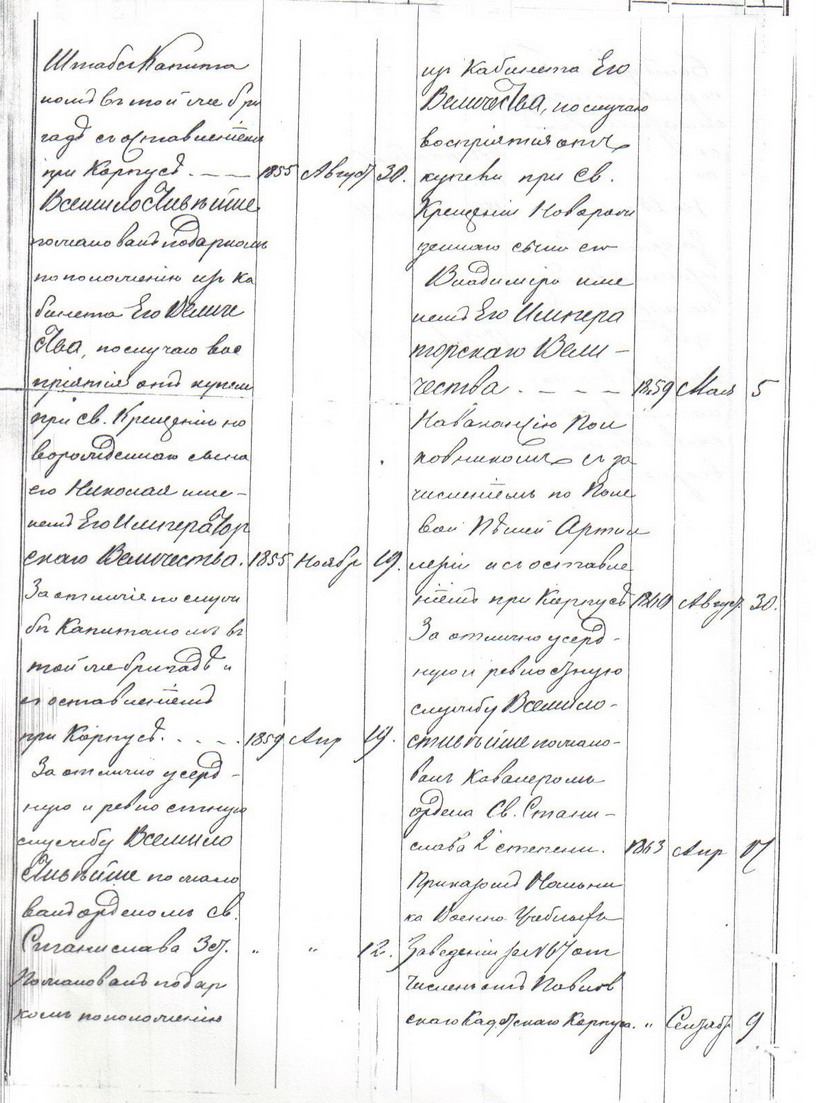 Штабсъ Капита
номъ въ той же бри
гадѣ съ оставленіемъ
при Корпусѣ. — — 1855 Август 30.
Всемилостивѣйше
пожалованъ подаркомъ
по положенію изъ Ка
бинета Его Величе
ства, по случаю вос
пріятія отъ купели
при Св. Крещеніи но
ворожденнаго сына
его Николая име-
немъ Его Император
скаго Величества. 1855 Ноябр 19.
За отличіе по служ
бѣ Капитаномъ въ
той же бригадѣ и
съ оставленіемъ
при Корпусѣ. . . . . 1859 Апр 19.
За отлично усерд-
ную и ревностную
службу Всемило
стивѣйше пожало
ванъ орденомъ Св.
Станислава 3 ст. " " 12.
Пожалованъ подар
комъ по положенію
изъ Кабинета Его
Величества, по случаю
воспріятія отъ
купели при Св.
Крещеніи Новорож
деннаго сына его
Владиміра име
немъ Его Импера
торскаго Вели-
чества . — — — 1859 Мая 5
На ваканцію Пол
ковникомъ съ за
численіемъ по Поле
вой Пѣшей Артил
леріи и съ оставле
ніемъ при Корпусѣ 1860 Август. 30.
За отлично усерд-
ную и ревностную
службу Всемило-
стивѣйше пожало-
ванъ Кавалеромъ
ордена Св. Стани-
слава 2 степени. 1863 Апр 17
Приказомъ Начални
ка Военно Учебныхъ
Заведеній за № 67 от
численъ отъ Павлов
скаго Кадетскаго Корпуса. " Сентябр 9